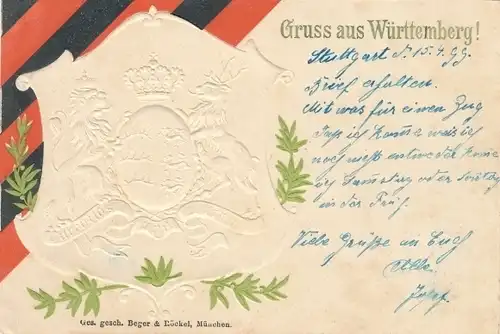 Gruss aus Württemberg!
Stuttgart d. 15.4.99.
Brief erhalten.
Mit was für einen Zug
ich komme weis ich
noch nicht entweder komme
ich Samstag oder
in der Früh.
Viele Grüße an Euch
Alle.
Josef
Ges. gesch. Beger & Röckel, München.